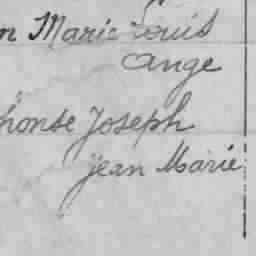 n Marie Louis
Ange
honse Joseph
Jean Marie